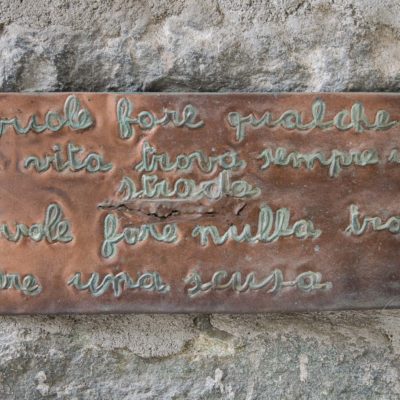 vuole fare qualche
vita trova sempre
strada
uole fare nulla tro
re una scusa